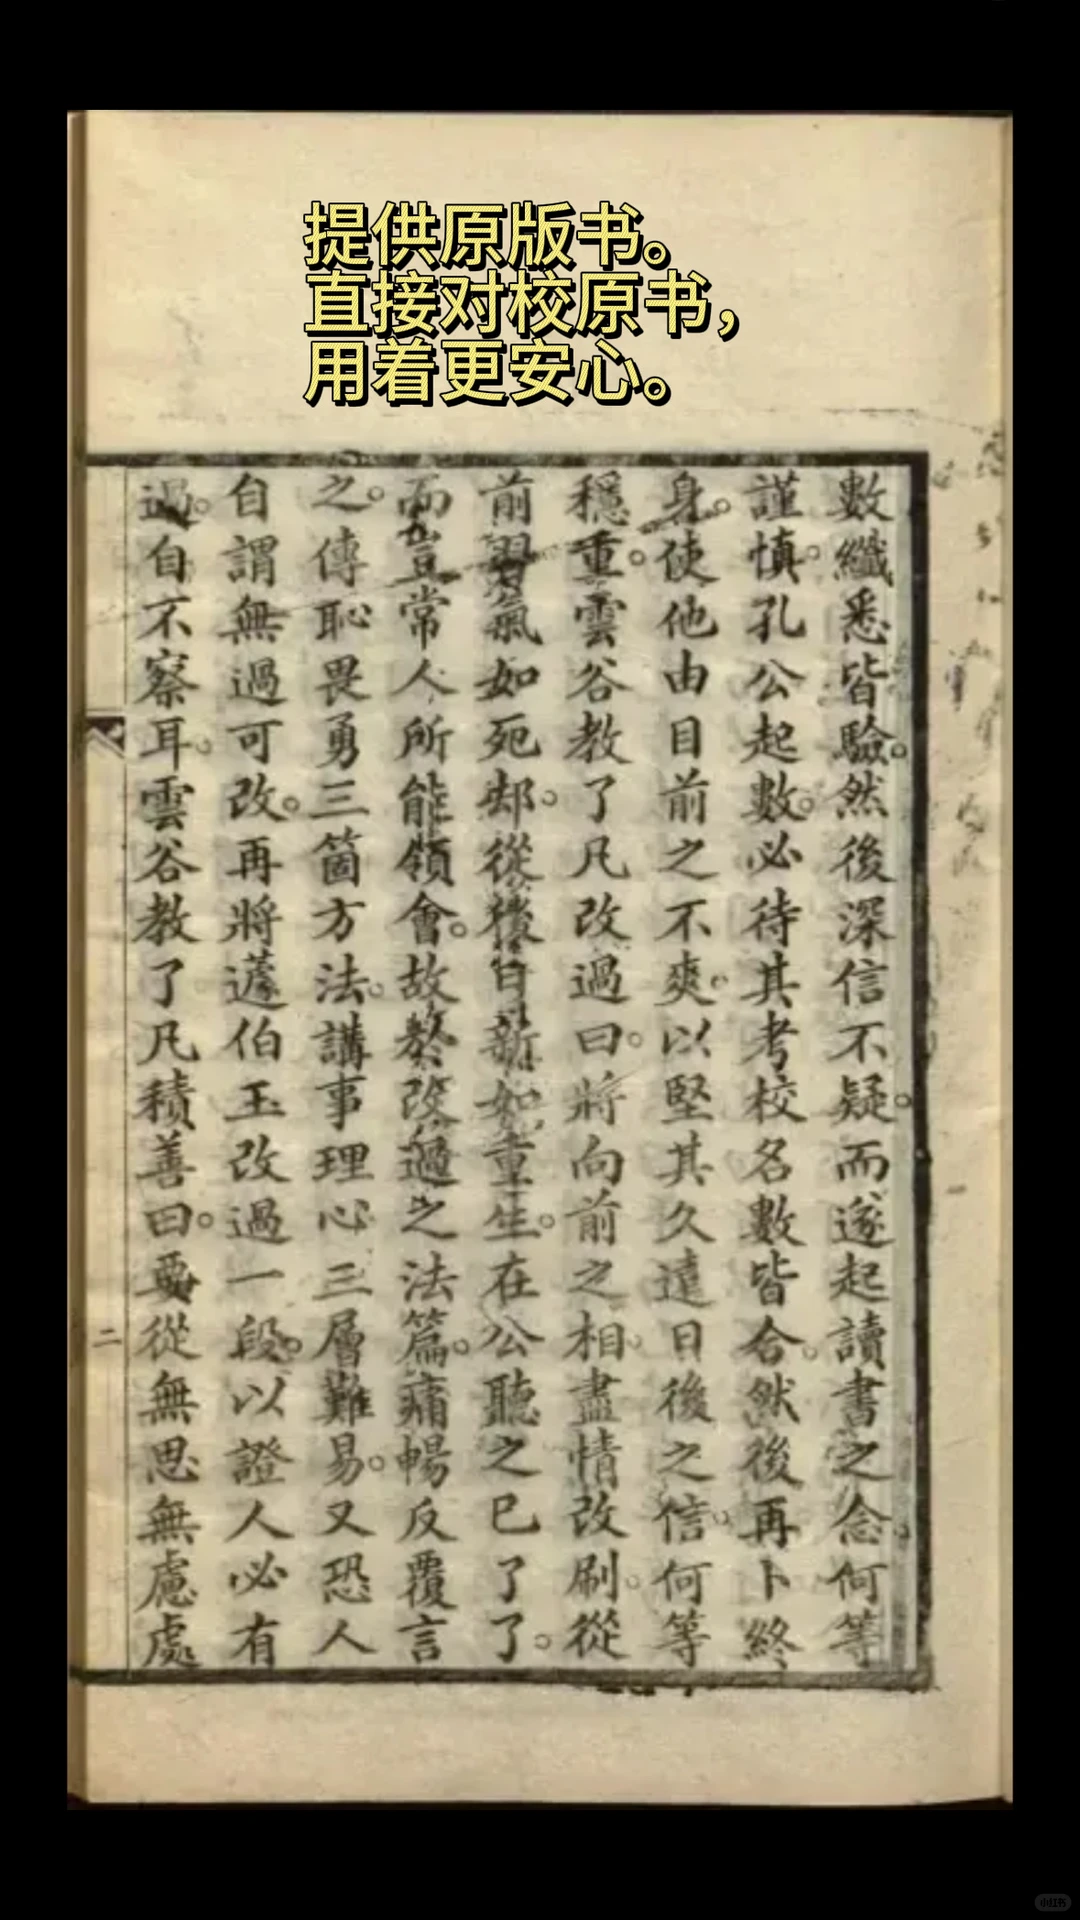 提供原版书。
直接对校原书，
用着更安心。
數纖悉皆驗。然後深信不疑。而遂起讀書之念。何等
謹慎。孔公起數。必待其考校名數皆合。然後再卜終
身。使他由目前之不爽。以堅其久遠日後之信。何等
穩重。雲谷教了凡改過曰。將向前之相。盡情改刷。從
前習氣如死却。從後日新如重生。在公聽之已了了。
而豈常人所能領會。故發改過之法篇。痛暢反覆言
之。傳恥畏勇三箇方法。講事理心三層難易。又恐人
自謂無過可改。再將蘧伯玉改過一段。以證人必有
過。自不察耳。雲谷教了凡積善曰。要從無思無慮處
二
小红书